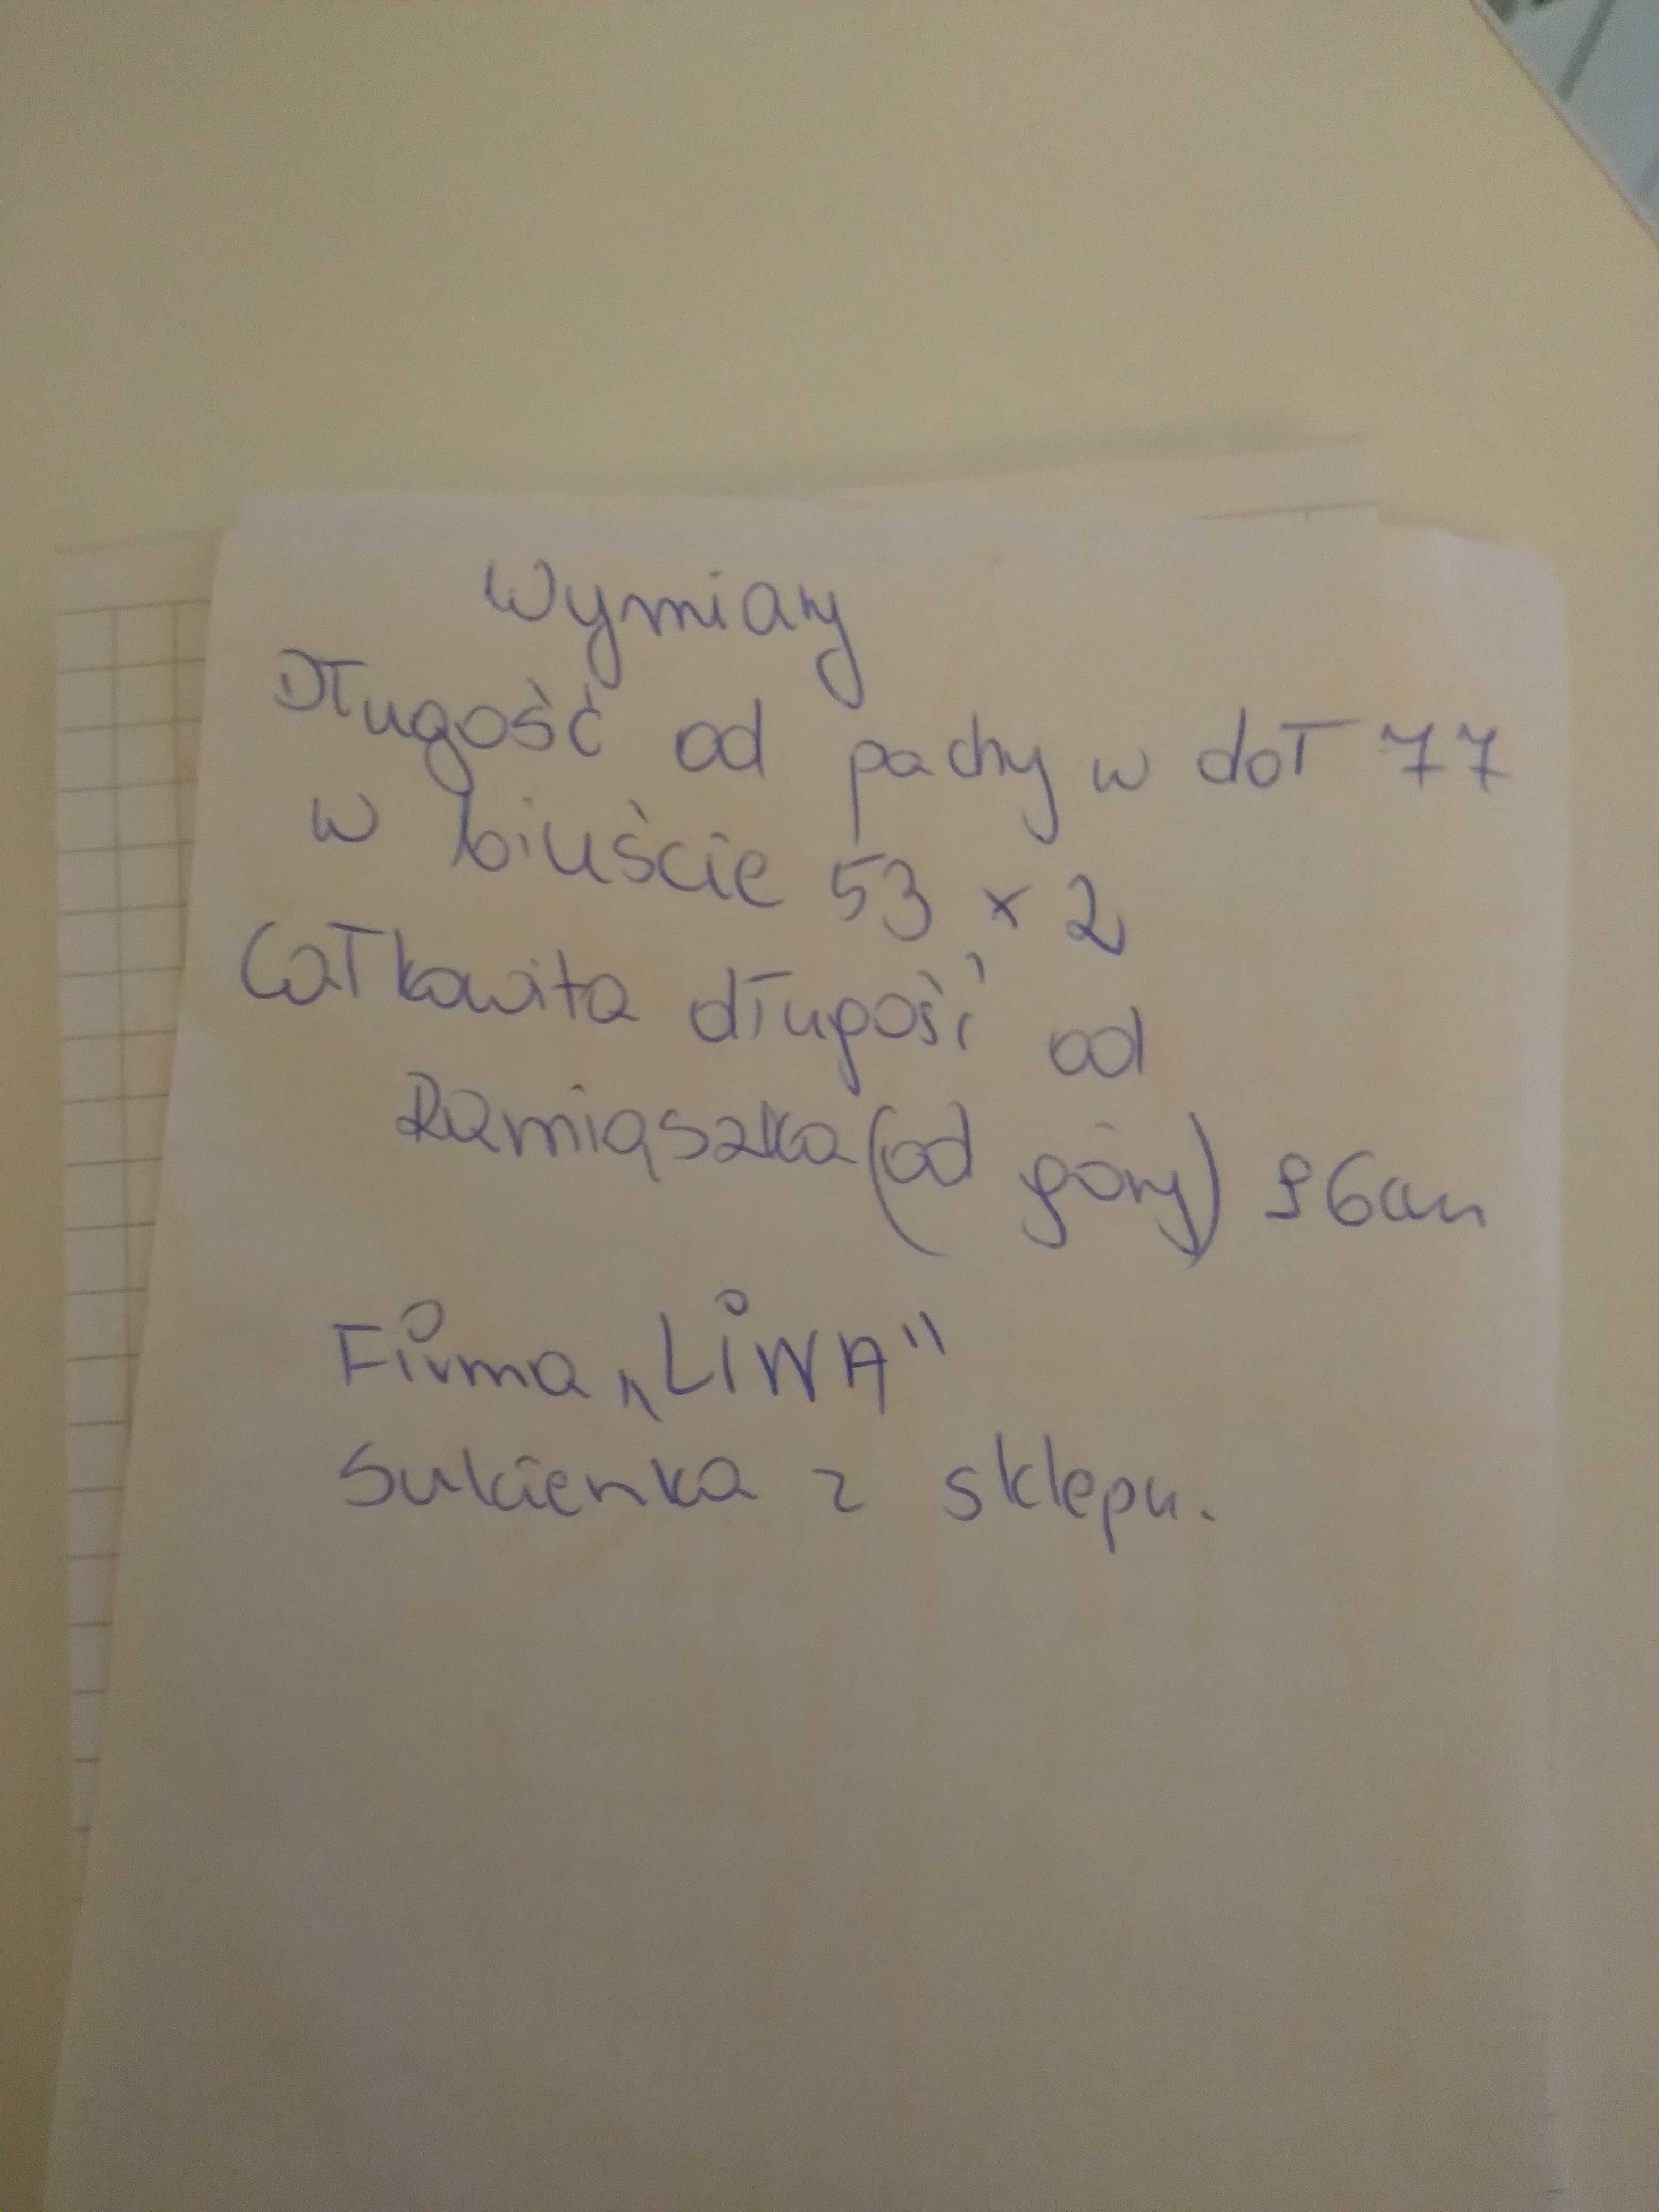 Wymiary
Długość od pachy w dół 77
w biuście 53 x 2
Całkowita długość od
Ramiączka (od góry) 96cm
Firma „LiWA"
Sukienka z sklepu.